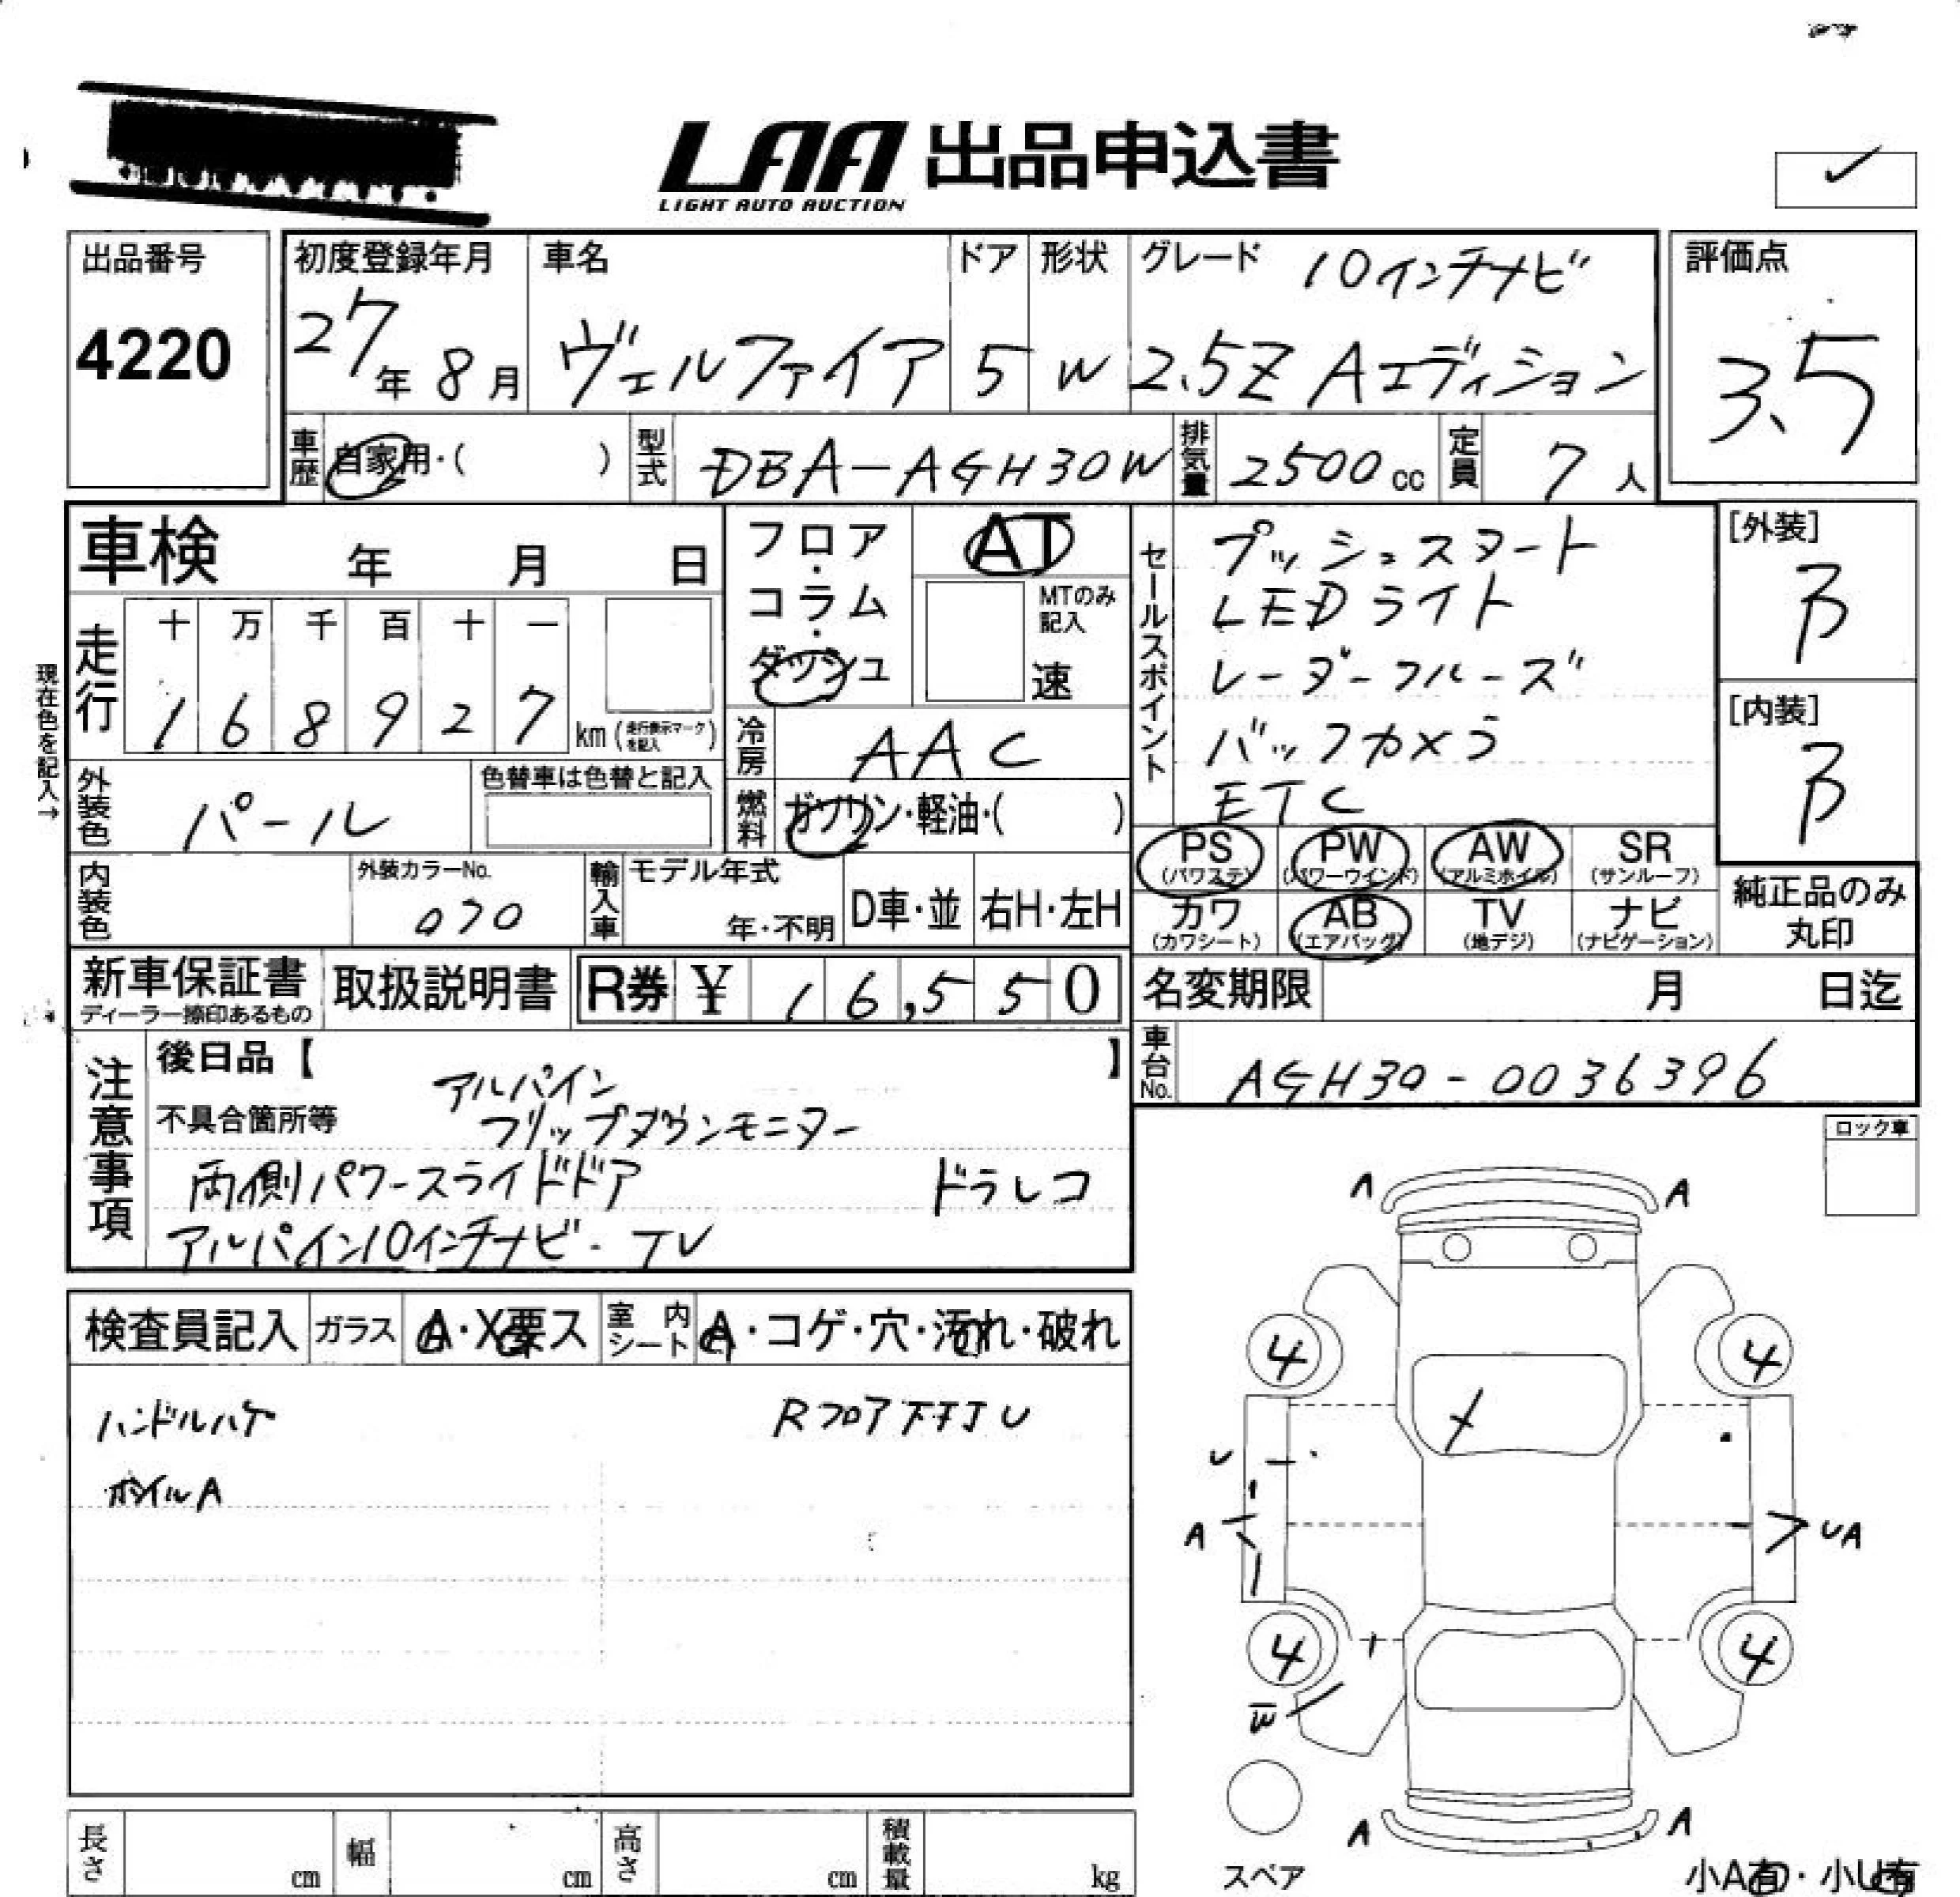 LAA 出品申込書
LIGHT AUTO AUCTION
出品番号
4220
初度登録年月
27年 8月
車名
ヴェルファイア
ドア
5
形状
W
グレード 10インチナビ
2.5Z Aエディション
評価点
3.5
車歴 自家用・( )
型式 DBA-AGH30W
排気量 2500cc
定員 7人
車検 年 月 日
フロア・コラム・ダッシュ
AT
MTのみ記入
速
セールスポイント
プッシュスタート
LEDライト
レーダークルーズ
バックカメラ
ETC
[外装]
B
[内装]
B
現在色を記入→
走行
十 万 千 百 十 一
1 6 8 9 2 7 km (走行表示マークを記入)
冷房 AAC
外装色 パール
色替車は色替と記入
燃料 ガソリン・軽油・( )
PS (パワステ) PW (パワーウインド) AW (アルミホイル) SR (サンルーフ)
カワ (カワシート) AB (エアバッグ) TV (地デジ) ナビ (ナビゲーション)
純正品のみ
丸印
内装色
外装カラーNo.
070
輸入車
モデル年式
年・不明
D車・並
右H・左H
新車保証書
ディーラー捺印あるもの
取扱説明書
R券 ¥ 16,550
名変期限 月 日迄
車台No. AGH30-0036396
注意事項
後日品【 】
不具合箇所等
アルパイン
フリップダウンモニター
両側パワースライドドア ドラレコ
アルパイン10インチナビ・TV
ロック車
検査員記入 ガラス A・X要ス 室内シート A・コゲ・穴・汚れ・破れ
ハンドルハゲ Rフロア下回りU
ホイルA
A A
4 4
U
A UA
4 4
W
A A
スペア
小A有・小U有
長さ cm 幅 cm 高さ cm 積載量 kg